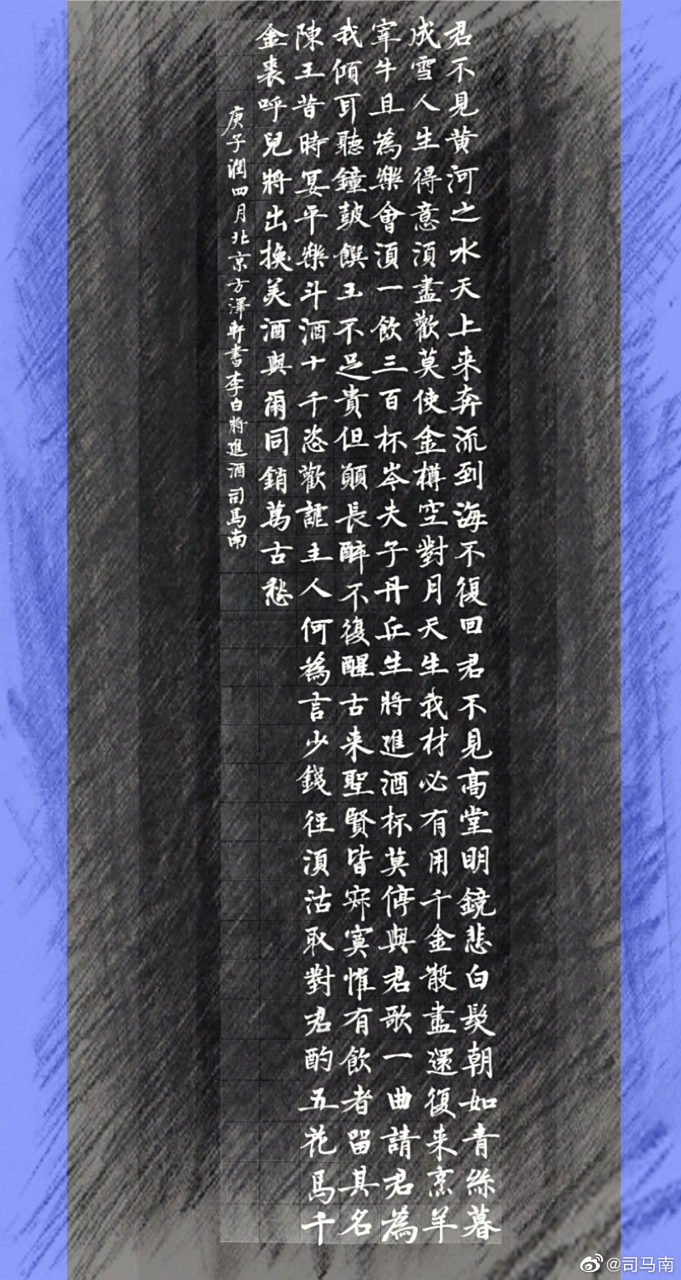 君不見黄河之水天上来奔流到海不復回君不見高堂明鏡悲白髮朝如青絲暮
成雪人生得意湏盡歡莫使金樽空對月天生我材必有用千金散盡還復来烹羊
宰牛且為樂會湏一飲三百杯岑夫子丹丘生將進酒杯莫停與君歌一曲請君為
我傾耳聽鐘鼓饌玉不足貴但願長醉不復醒古来聖賢皆寂寞惟有飲者留其名
陳王昔時宴平樂斗酒十千恣歡謔主人何為言少錢徑湏沽取對君酌五花馬千
金裘呼兒將出換美酒與爾同銷萬古愁
庚子潤四月北京方澤軒書李白將進酒司馬南
@司马南